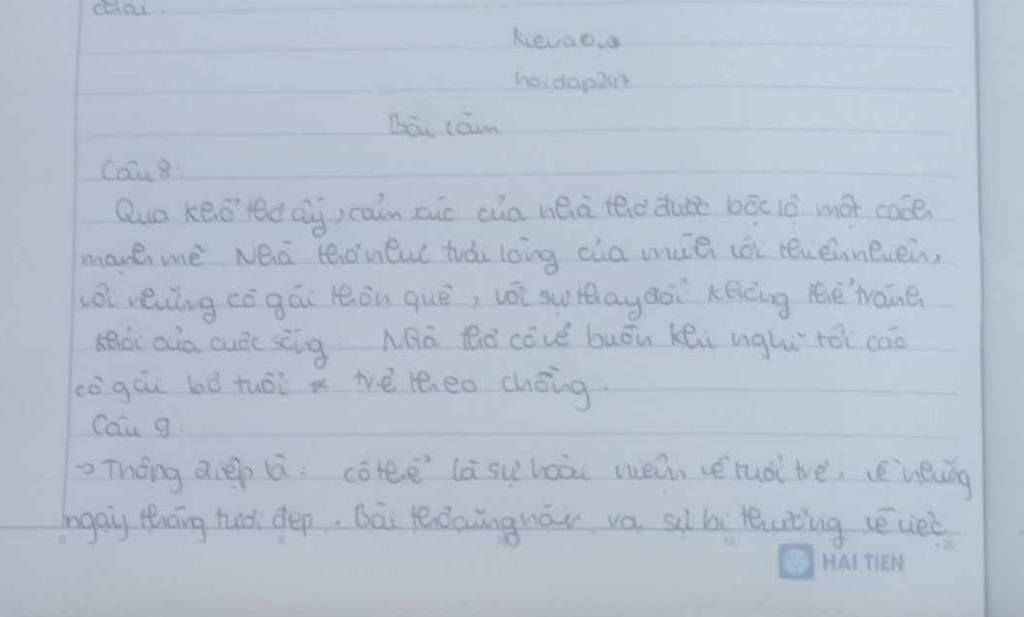 kieuao
hoidap247
Bài làm
Câu 8:
Qua khổ thơ ấy, cảm xúc của nhà thơ được bộc lộ một cách
mạnh mẽ Nhà thơ như trải lòng của mình với thiên nhiên,
với những cô gái thôn quê, với sự thay đổi không thể tránh
khỏi của cuộc sống. Nhà thơ có vẻ buồn khi nghĩ tới các
cô gái bỏ tuổi trẻ theo chồng.
Câu 9
→ Thông điệp là: có thể là sự hoài niệm về tuổi trẻ, về những
ngày tháng tươi đẹp. Bài thơ cũng va sự bi thương về việc
HAI TIEN